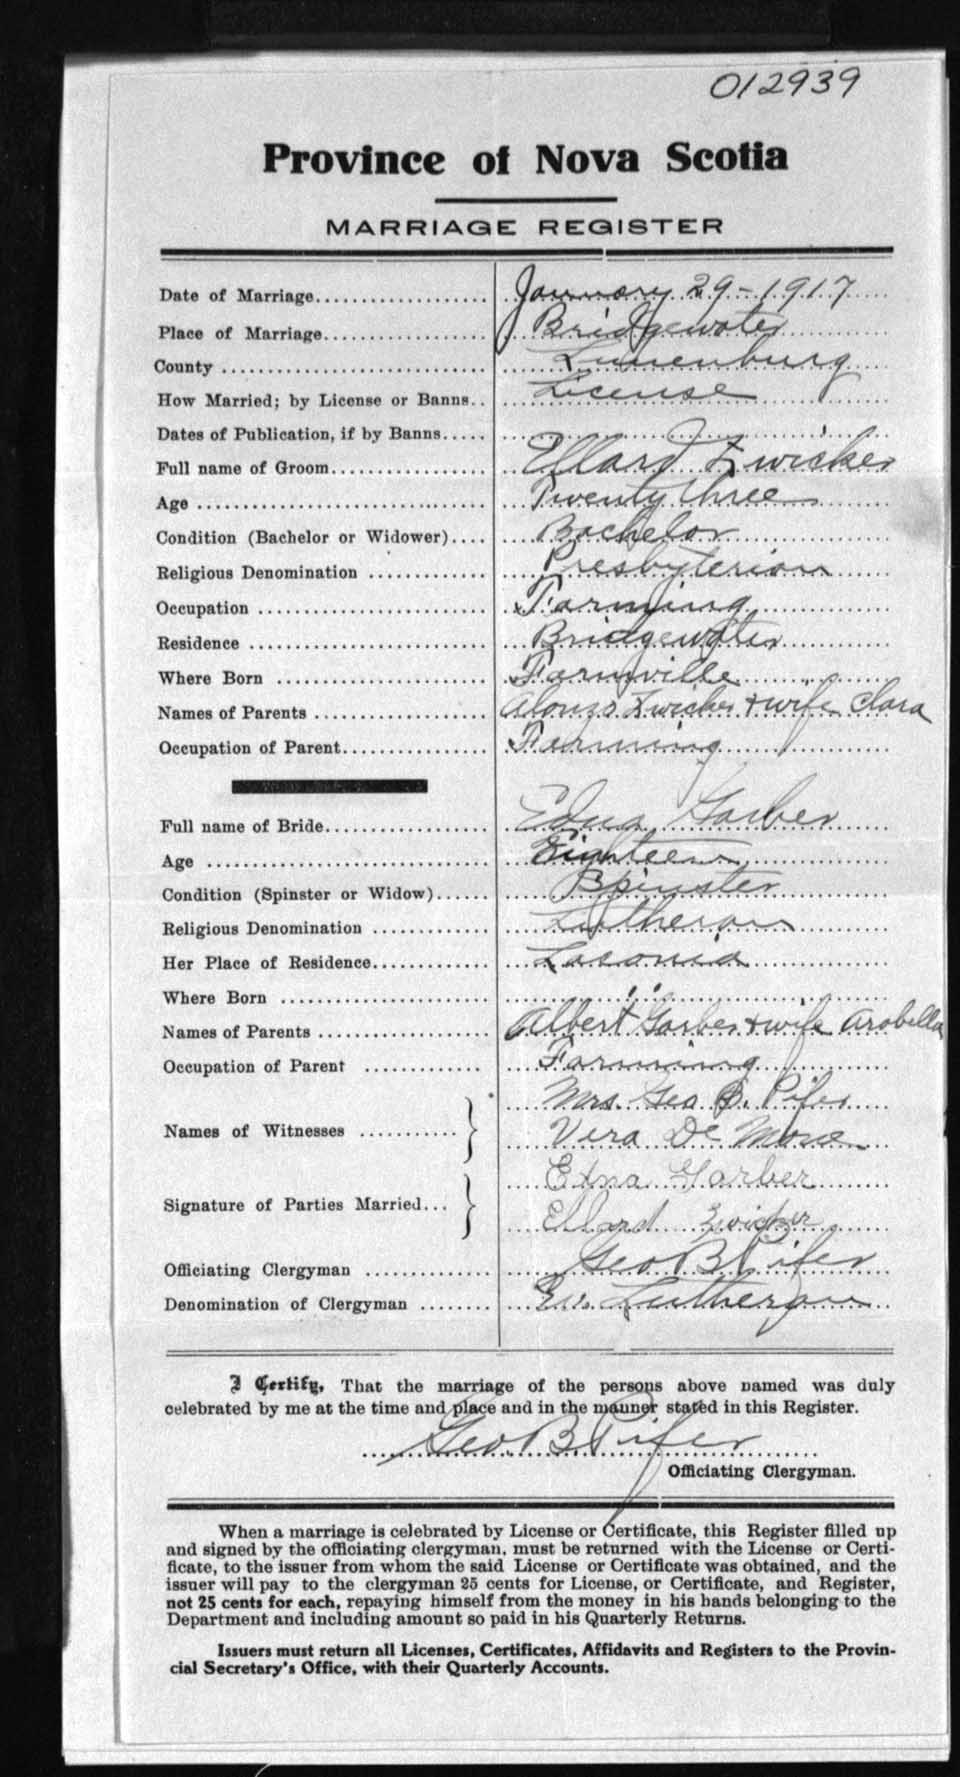 012939
Province of Nova Scotia
MARRIAGE REGISTER
Date of Marriage January 29-1917
Place of Marriage Bridgewater
County Lunenburg
How Married; by License or Banns License
Dates of Publication, if by Banns
Full name of Groom Ellard Zwicker
Age Twenty three
Condition (Bachelor or Widower) Bachelor
Religious Denomination Presbyterian
Occupation Farming
Residence Bridgewater
Where Born Farmville
Names of Parents Alonzo Zwicker + wife Clara
Occupation of Parent Farming
Full name of Bride Edna Garber
Age Eighteen
Condition (Spinster or Widow) Spinster
Religious Denomination Lutheran
Her Place of Residence Laconia
Where Born " "
Names of Parents Albert Garber + wife Arabella
Occupation of Parent Farming
Mrs. Geo B. Pifer
Names of Witnesses Vera De Mone
Edna Garber
Signature of Parties Married Ellard Zwicker
Officiating Clergyman Geo B Pifer
Denomination of Clergyman Ev. Lutheran
I Certify, That the marriage of the persons above named was duly
celebrated by me at the time and place and in the manner stated in this Register.
Geo. B. Pifer
Officiating Clergyman.
When a marriage is celebrated by License or Certificate, this Register filled up
and signed by the officiating clergyman, must be returned with the License or Certi-
ficate, to the issuer from whom the said License or Certificate was obtained, and the
issuer will pay to the clergyman 25 cents for License, or Certificate, and Register,
not 25 cents for each, repaying himself from the money in his hands belonging to the
Department and including amount so paid in his Quarterly Returns.
Issuers must return all Licenses, Certificates, Affidavits and Registers to the Provin-
cial Secretary's Office, with their Quarterly Accounts.